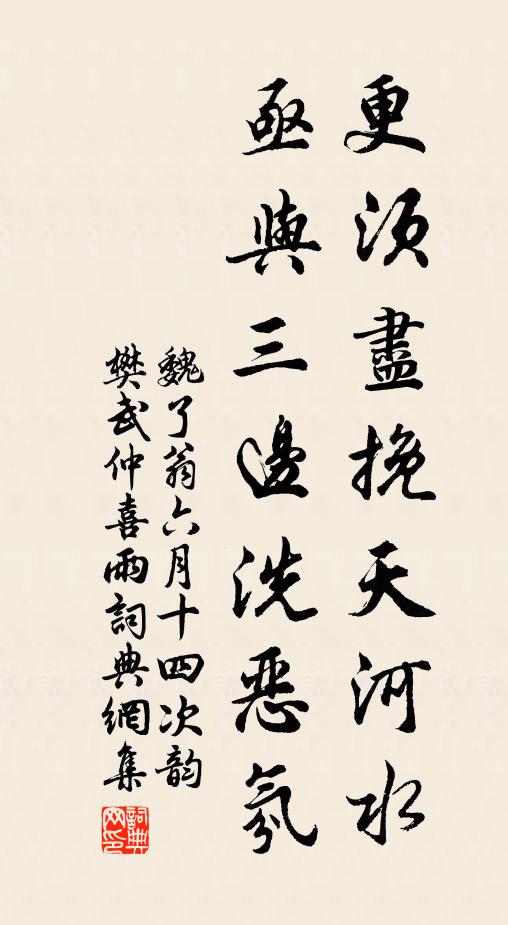 更須盡挽天河水
亟與三邊洗惡氛
魏了翁六月十四次韵
樊武仲喜雨詞典網集
詞典
网印